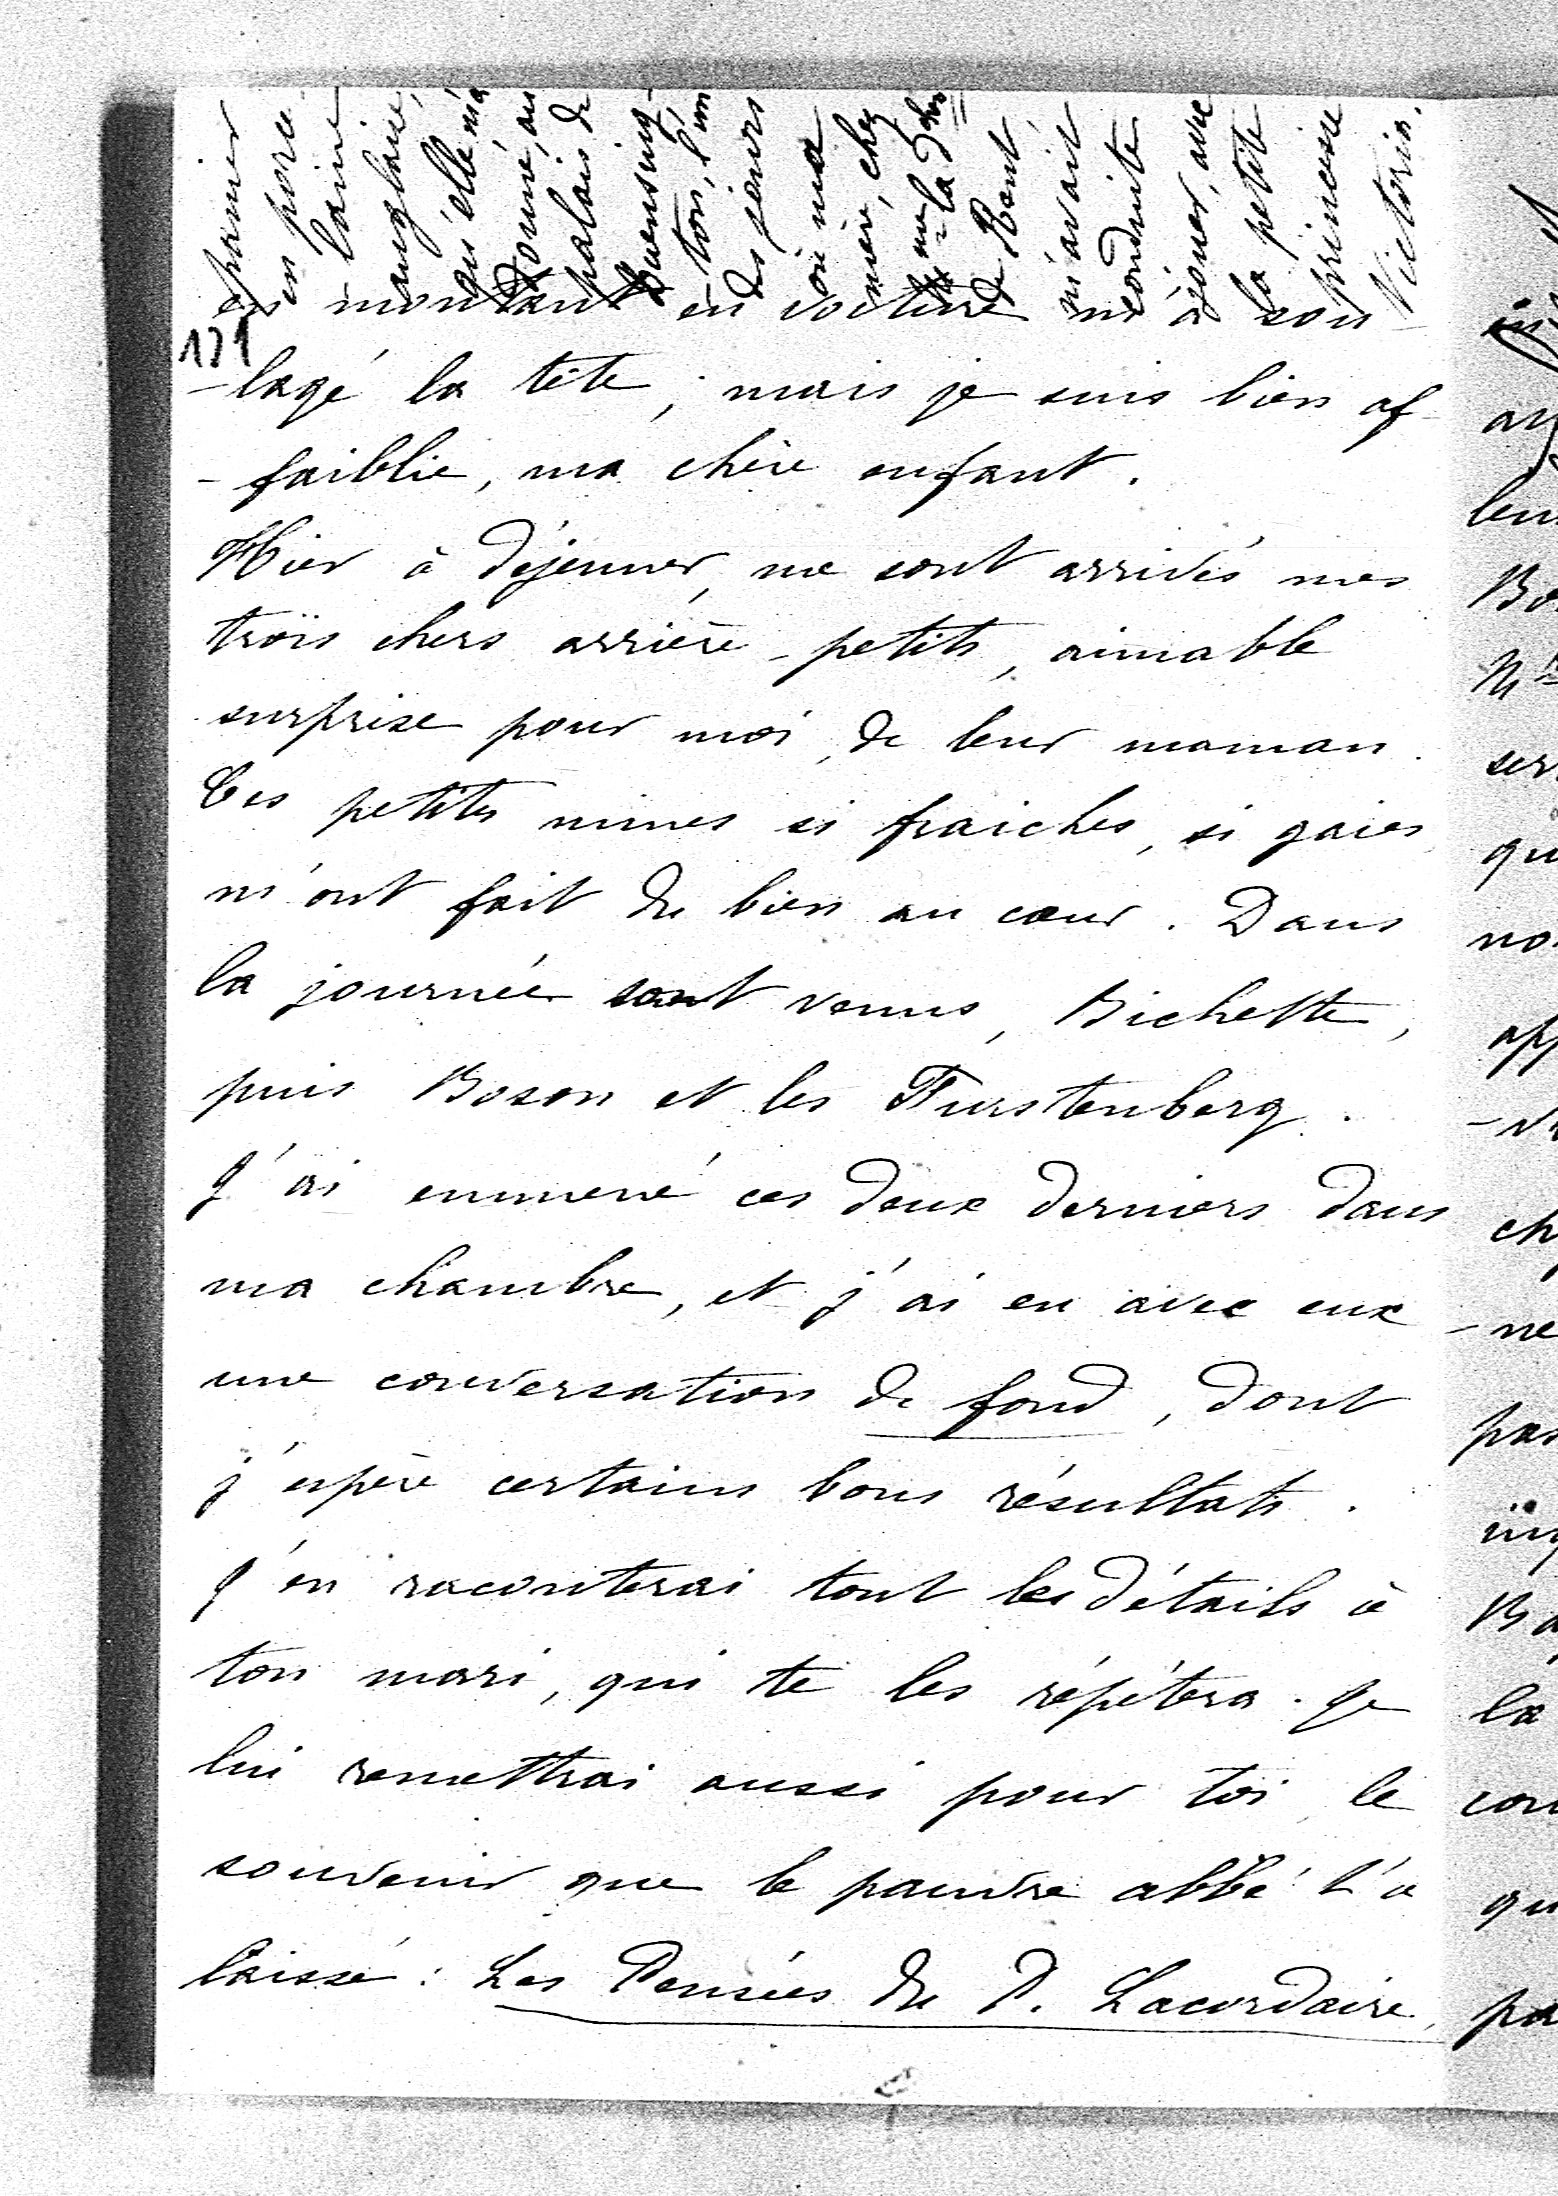 panier
en porce-
laine
anglaise,
qu'elle m'a
donné, au
palais de
Kensing-
ton, l'un
des jours
où ma
mère, chez
la Dsse
de Kent,
m'avait
conduite
jouer, avec
la petite
princesse
Victoria.
en montant en voiture m'a sou-
171
-lagé la tête, mais je suis bien af-
-faiblie, ma chère enfant.
Hier à déjeuner, me sont arrivés mes
trois chers arrière-petits, aimable
surprise pour moi, de leur maman.
Ces petites mines si fraiches, si gaies,
m'ont fait du bien au cœur. Dans
la journée sont venus, Bichette,
puis Boson et les Furstenberg.
J'ai emmené ces deux derniers dans
ma chambre, et j'ai eu avec eux
une conversation de fond, dont
j'espère certains bons résultats.
J'en raconterai tout les détails à
ton mari, qui te les répétera. Je
lui remettrai aussi pour toi, le
souvenir que le pauvre abbé t'a
laissé : Les Pensées du P. Lacordaire,